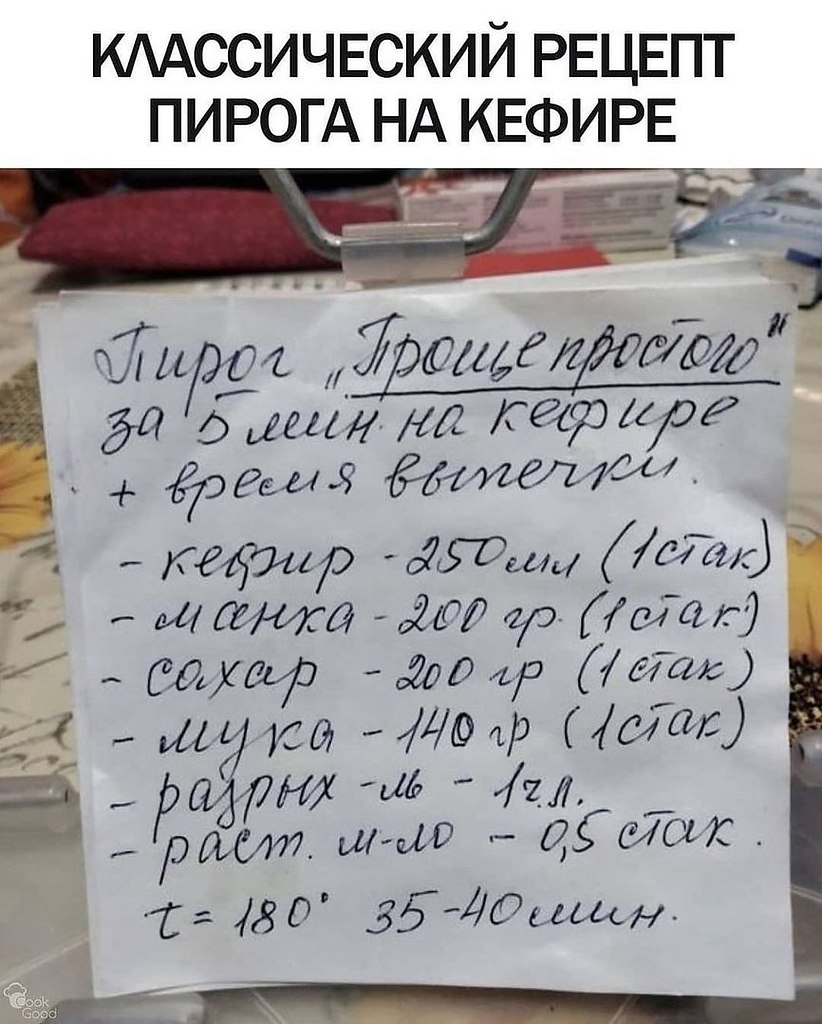 КЛАССИЧЕСКИЙ РЕЦЕПТ
ПИРОГА НА КЕФИРЕ
Пирог „Проще простого"
за 5 мин. на кефире
+ время выпечки.
- кефир - 250 мл (1 стак)
- манка - 200 гр. (1 стак.)
- сахар - 200 гр (1 стак)
- мука - 140 гр (1 стак)
- разрых-ль - 1 ч.л.
- раст. м-ло - 0,5 стак.
t = 180° 35-40 мин.
Cook
Good